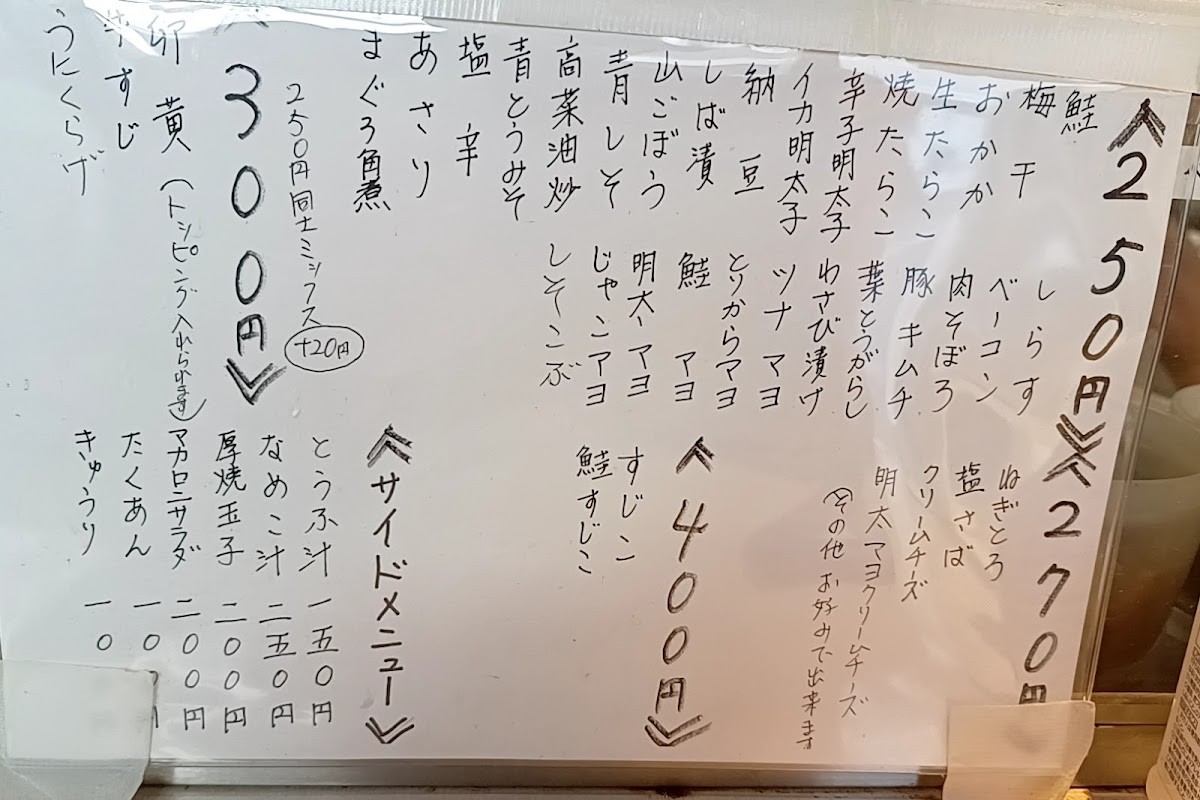 《250円》
鮭
梅干
おかか
生たらこ
焼たらこ
辛子明太子
イカ明太子
納豆
しば漬
山ごぼう
青しそ
高菜油炒
青とうみそ
塩辛
あさり
まぐろ角煮
しらす
ベーコン
肉そぼろ
豚キムチ
葉とうがらし
わさび漬け
ツナマヨ
とりからマヨ
鮭マヨ
明太マヨ
じゃこマヨ
しそこんぶ
250円同士ミックス
+20円
《270円
ねぎとろ
塩さば
クリームチーズ
明太マヨクリームチーズ
(その他 お好みで出来ます
《300円》
卵黄(トッピング入れられます)
牛すじ
うにくらげ
《400円》
すじこ
鮭すじこ
《サイドメニュー》
とうふ汁 一五〇円
なめこ汁 二五〇円
厚焼玉子 二〇〇円
マカロニサラダ 二〇〇円
たくあん 一〇
きゅうり 一〇